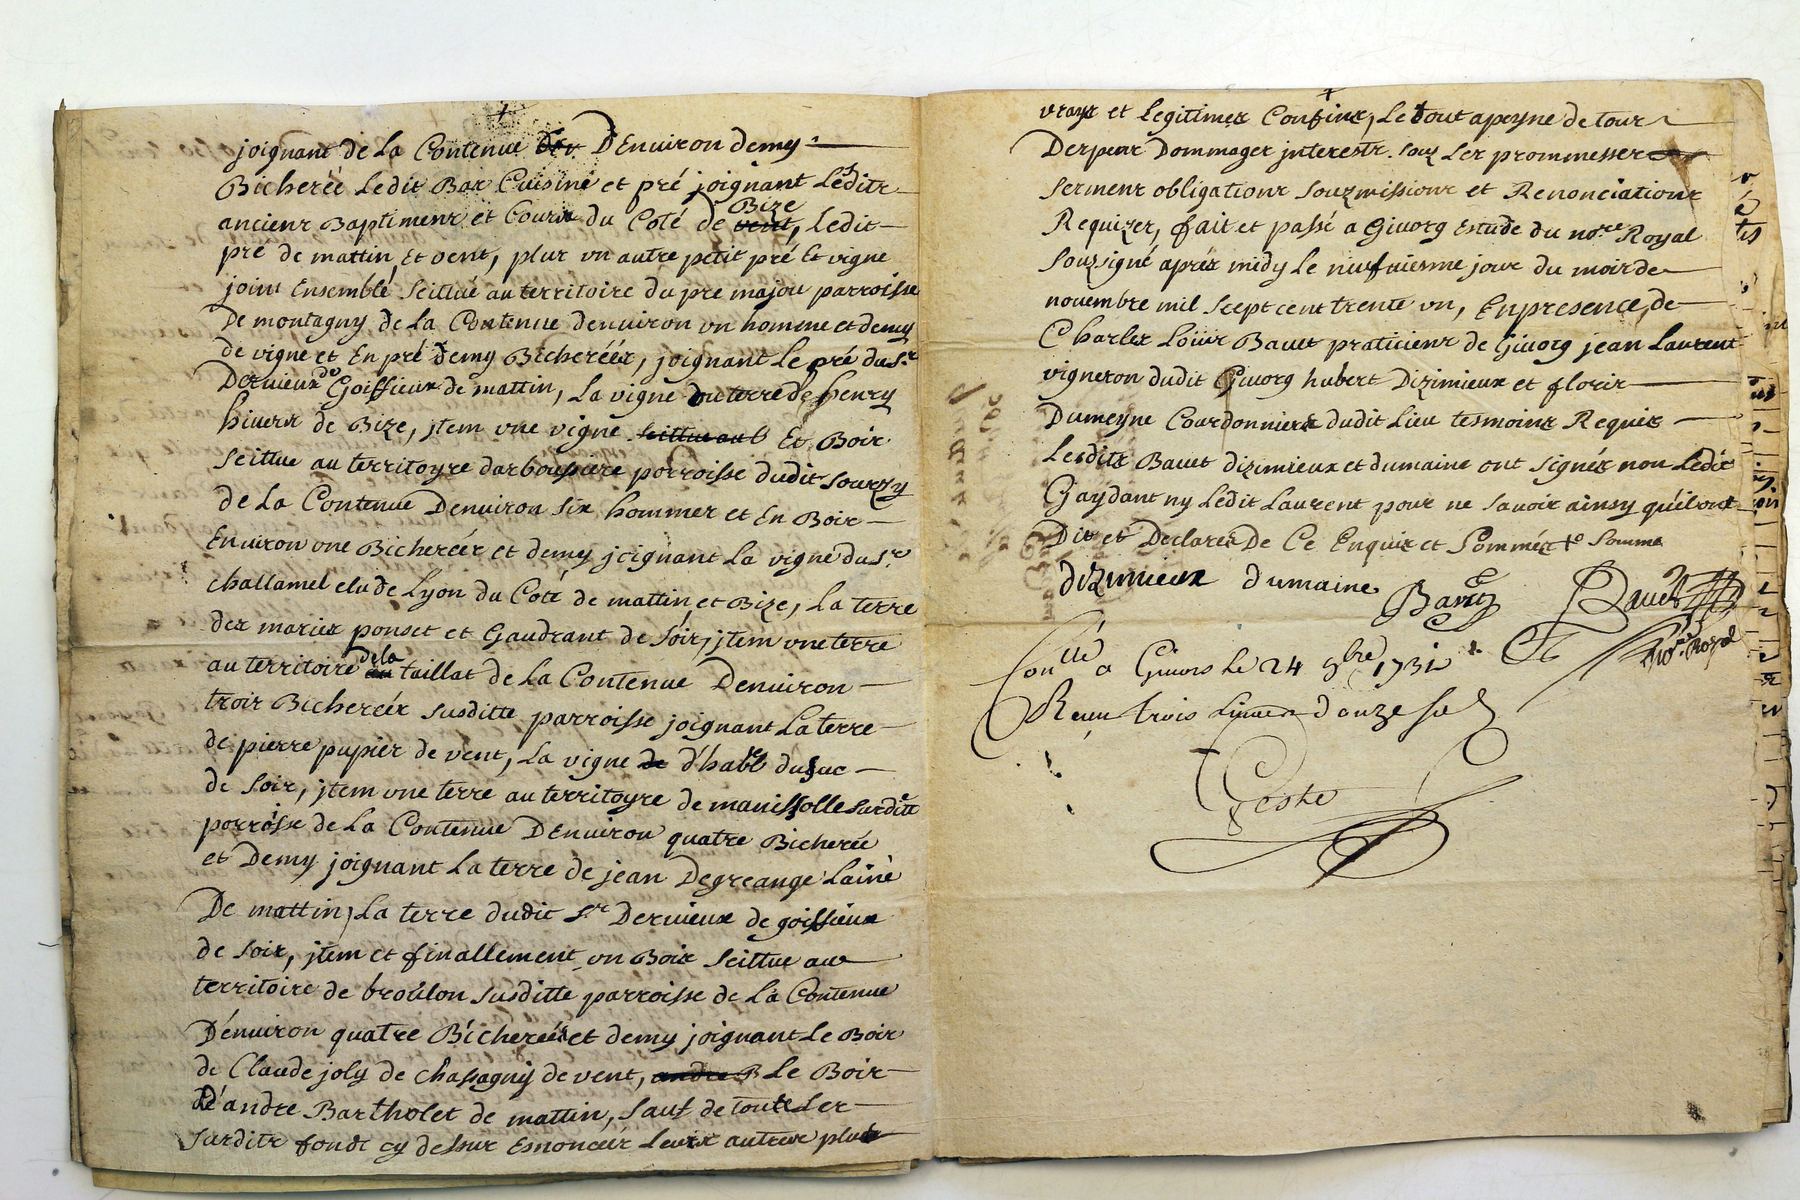 joignant de La Contenue D'Enuiron demy
Bicherée Ledit Bas Cuisine et pré joignant Lesdits
anciens Baptimens et Cours du Coté de Bize, Ledit
pré de mattin, Et vent, plus vn autre petit pré Et vigne
joins Ensemble scittué au territoire du pre majou parroisse
De montagny de La Contenue denuiron vn homme et demy
de vigne et En pré demy Bicherées, joignant Le pré du Sr
Deruieux de Goiffieux de mattin, La vigne ou terre de henry
hiuers de Bize, jtem vne vigne Et Bois
scittue au territoyre darboussiere parroisse dudit Sourzy
de La Contenue Denuiron six hommes et En Bois
Enuiron vne Bicherées et demy joignant La vigne du Sr
challamel elu de Lyon du Coté de mattin, et Bize, La terre
des maries ponset et Gaudrant de Soir, jtem vne terre
au territoire de la taillat de La Contenue Denuiron
trois Bicherées susditte parroisse joignant La terre
de pierre pupier de vent, La vigne d'habt dusuc
de Soir, jtem vne terre au territoyre de manissolle susditte
parroisse de La Contenue DEnuiron quatre Bicherée
et Demy joignant La terre de jean Degreange Lainé
De mattin, La terre dudit Sr Deruieux de goiffieux
de Soir, jtem et finallement vn Bois scittue au
territoire de broûlon susditte parroisse de La Contenue
D'énuiron quatre Bicherées et demy joignant Le Bois
de Claude joly de chassagny de vent, Le Bois
D'andre Bartholet de mattin, sauf de toute Les
susdits fonds cy dessus Esnonceés Leurs autres plus
vrays et Legitimes Confins, Le tout apeyne de tous
Despens Dommages jnterests. sous Les prommesses
serments obligations souzmissions et Renonciations
Requizes, fait et passé a Giuorg Estude du nore Royal
Souzsigné aprés midy Le neufuiesme jour du mois de
nouembre mil sept cent trente vn, En presence, de
Charles Loüis Bauet praticiens de Giuorg jean Laurent
vigneron dudit Giuorg hubert Dizimieux et floris
Dumeyne Courdonniers dudit Lieu tesmoins Requis
Lesdits Bauet dizimieux et dumaine ont signés non Ledit
Gaydant ny Ledit Laurent pour ne sauoir ainsy quéil ont
Dit et Declarés De Ce Enquis et Sommés
dizimieux dumaine Bauet Bauet
nore Royal
Conlle a Giuors le 24 9bre 1731
Receu trois Liures douze sols
Geste